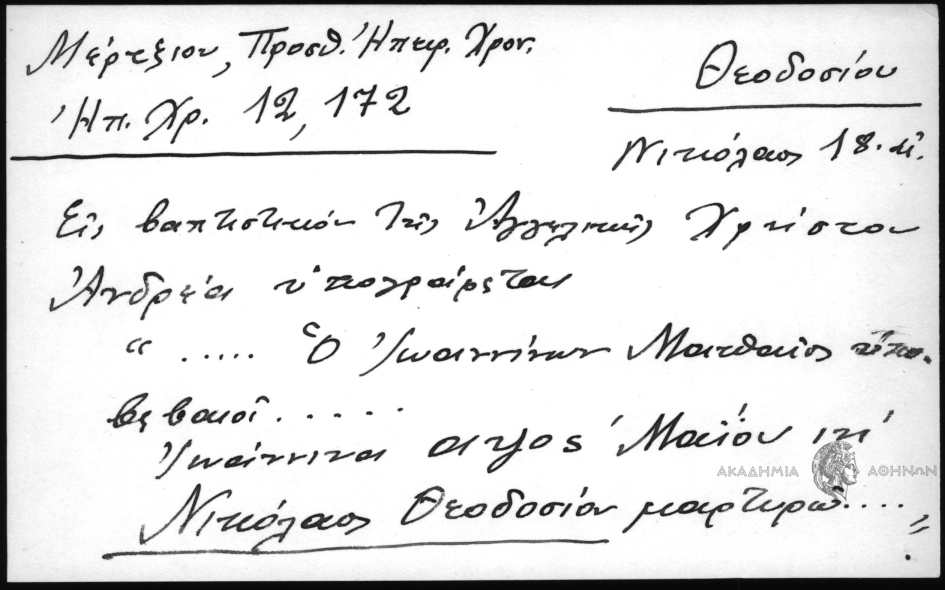 Μέρτζιου, Προσθ. Ἠπειρ. Χρον.
Ἠπ. Χρ. 12, 172
Θεοδοσίου
Νικόλαος 18. αἰ.
Εἰς βαπτιστικὸν τῆς Ἀγγελικῆς Χρήστου
Ἀνδρέα ὑπογράφεται
" ..... Ὁ Ἰωαννίνων Ματθαῖος ἐπι-
βεβαιοῖ .....
Ἰωάννινα αψος΄ Μαΐου
ΑΚΑΔΗΜΙΑ ΑΘΗΝΩΝ
Νικόλαος Θεοδοσίου μαρτυρῶ .... "